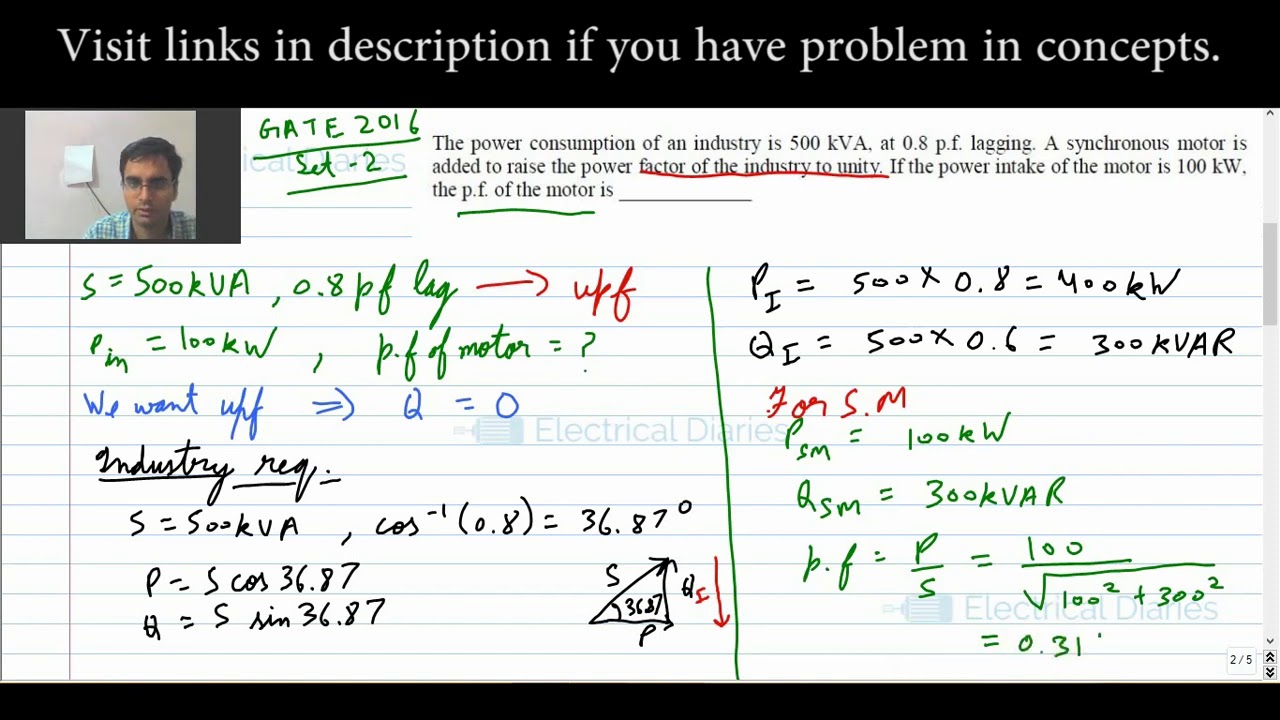 Visit links in description if you have problem in concepts.
GATE 2016
Set - 2
The power consumption of an industry is 500 kVA, at 0.8 p.f. lagging. A synchronous motor is
added to raise the power factor of the industry to unity. If the power intake of the motor is 100 kW,
the p.f. of the motor is _______________
S = 500kVA , 0.8 pf lag → upf
Pin = 100kW , p.f of motor = ?
We want upf ⇒ Q = 0
Industry req.
S = 500kVA , cos⁻¹(0.8) = 36.87⁰
P = S cos 36.87
Q = S sin 36.87
S
36.87
P
QI
PI = 500 × 0.8 = 400kW
QI = 500 × 0.6 = 300kVAR
For S.M
PSM = 100kW
QSM = 300kVAR
p.f = P/S = 100/√100² + 300²
= 0.31
Electrical Diaries
Electrical Diaries
2 / 5